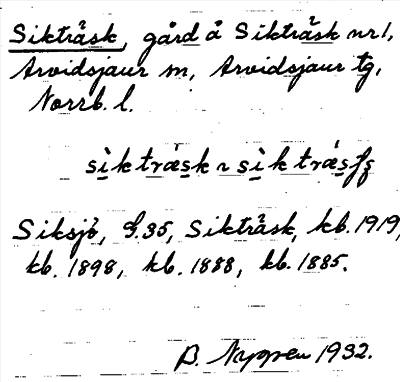 Sikträsk, gård å Sikträsk nr 1,
Arvidsjaur sn, Arvidsjaur tg,
Norrb. l.
sìktræ̀sk ~ sìktrǽsk
Siksjö, G.35, Sikträsk, kb. 1919,
kb. 1898, kb. 1888, kb. 1885.
B. Nygren 1932.